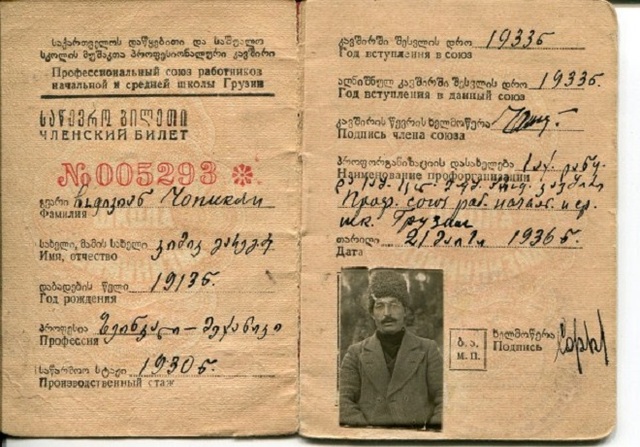 საქართველოს დაწყებითი და საშუალო
სკოლის მუშაკთა პროფესიონალური კავშირი
Профессиональный союз работников
начальной и средней школы Грузии
საწევრო ბილეთი
ЧЛЕНСКИЙ БИЛЕТ
№ 005293
გვარი
Фамилия
სახელი, მამის სახელი
Имя, отчество
დაბადების წელი 1913 წ.
Год рождения
პროფესია
Профессия
საწარმოო სტაჟი 1930 წ.
Производственный стаж
კავშირში შესვლის დრო 1933 წ.
Год вступления в союз
აღნიშნულ კავშირში შესვლის დრო 1933 წ.
Год вступления в данный союз
კავშირის წევრის ხელმოწერა
Подпись члена союза
პროფორგანიზაციის დასახელება
Наименование профорганизации
Проф. союз раб. начал. и ср.
шк. Грузии
თარიღი 21 მაისი 1936 წ.
Дата
ბ. ა.
М. П.
ხელმოწერა
Подпись